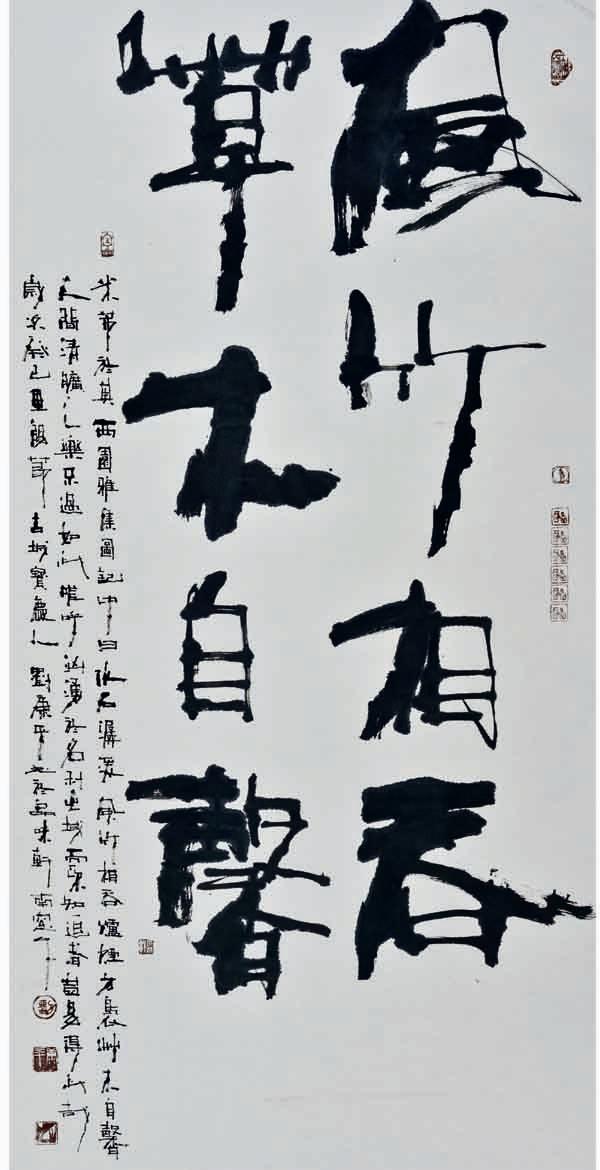 風竹相吞
草木自馨
米芾於其西園雅集圖記中曰水石潺湲風竹相吞爐煙方裊艸木自馨
人間清曠之樂不過如此嗟呼洶湧於名利之域而不知退者豈易得此哉
歲次癸巳節古城寶雞人劉康平於味軒南窗下